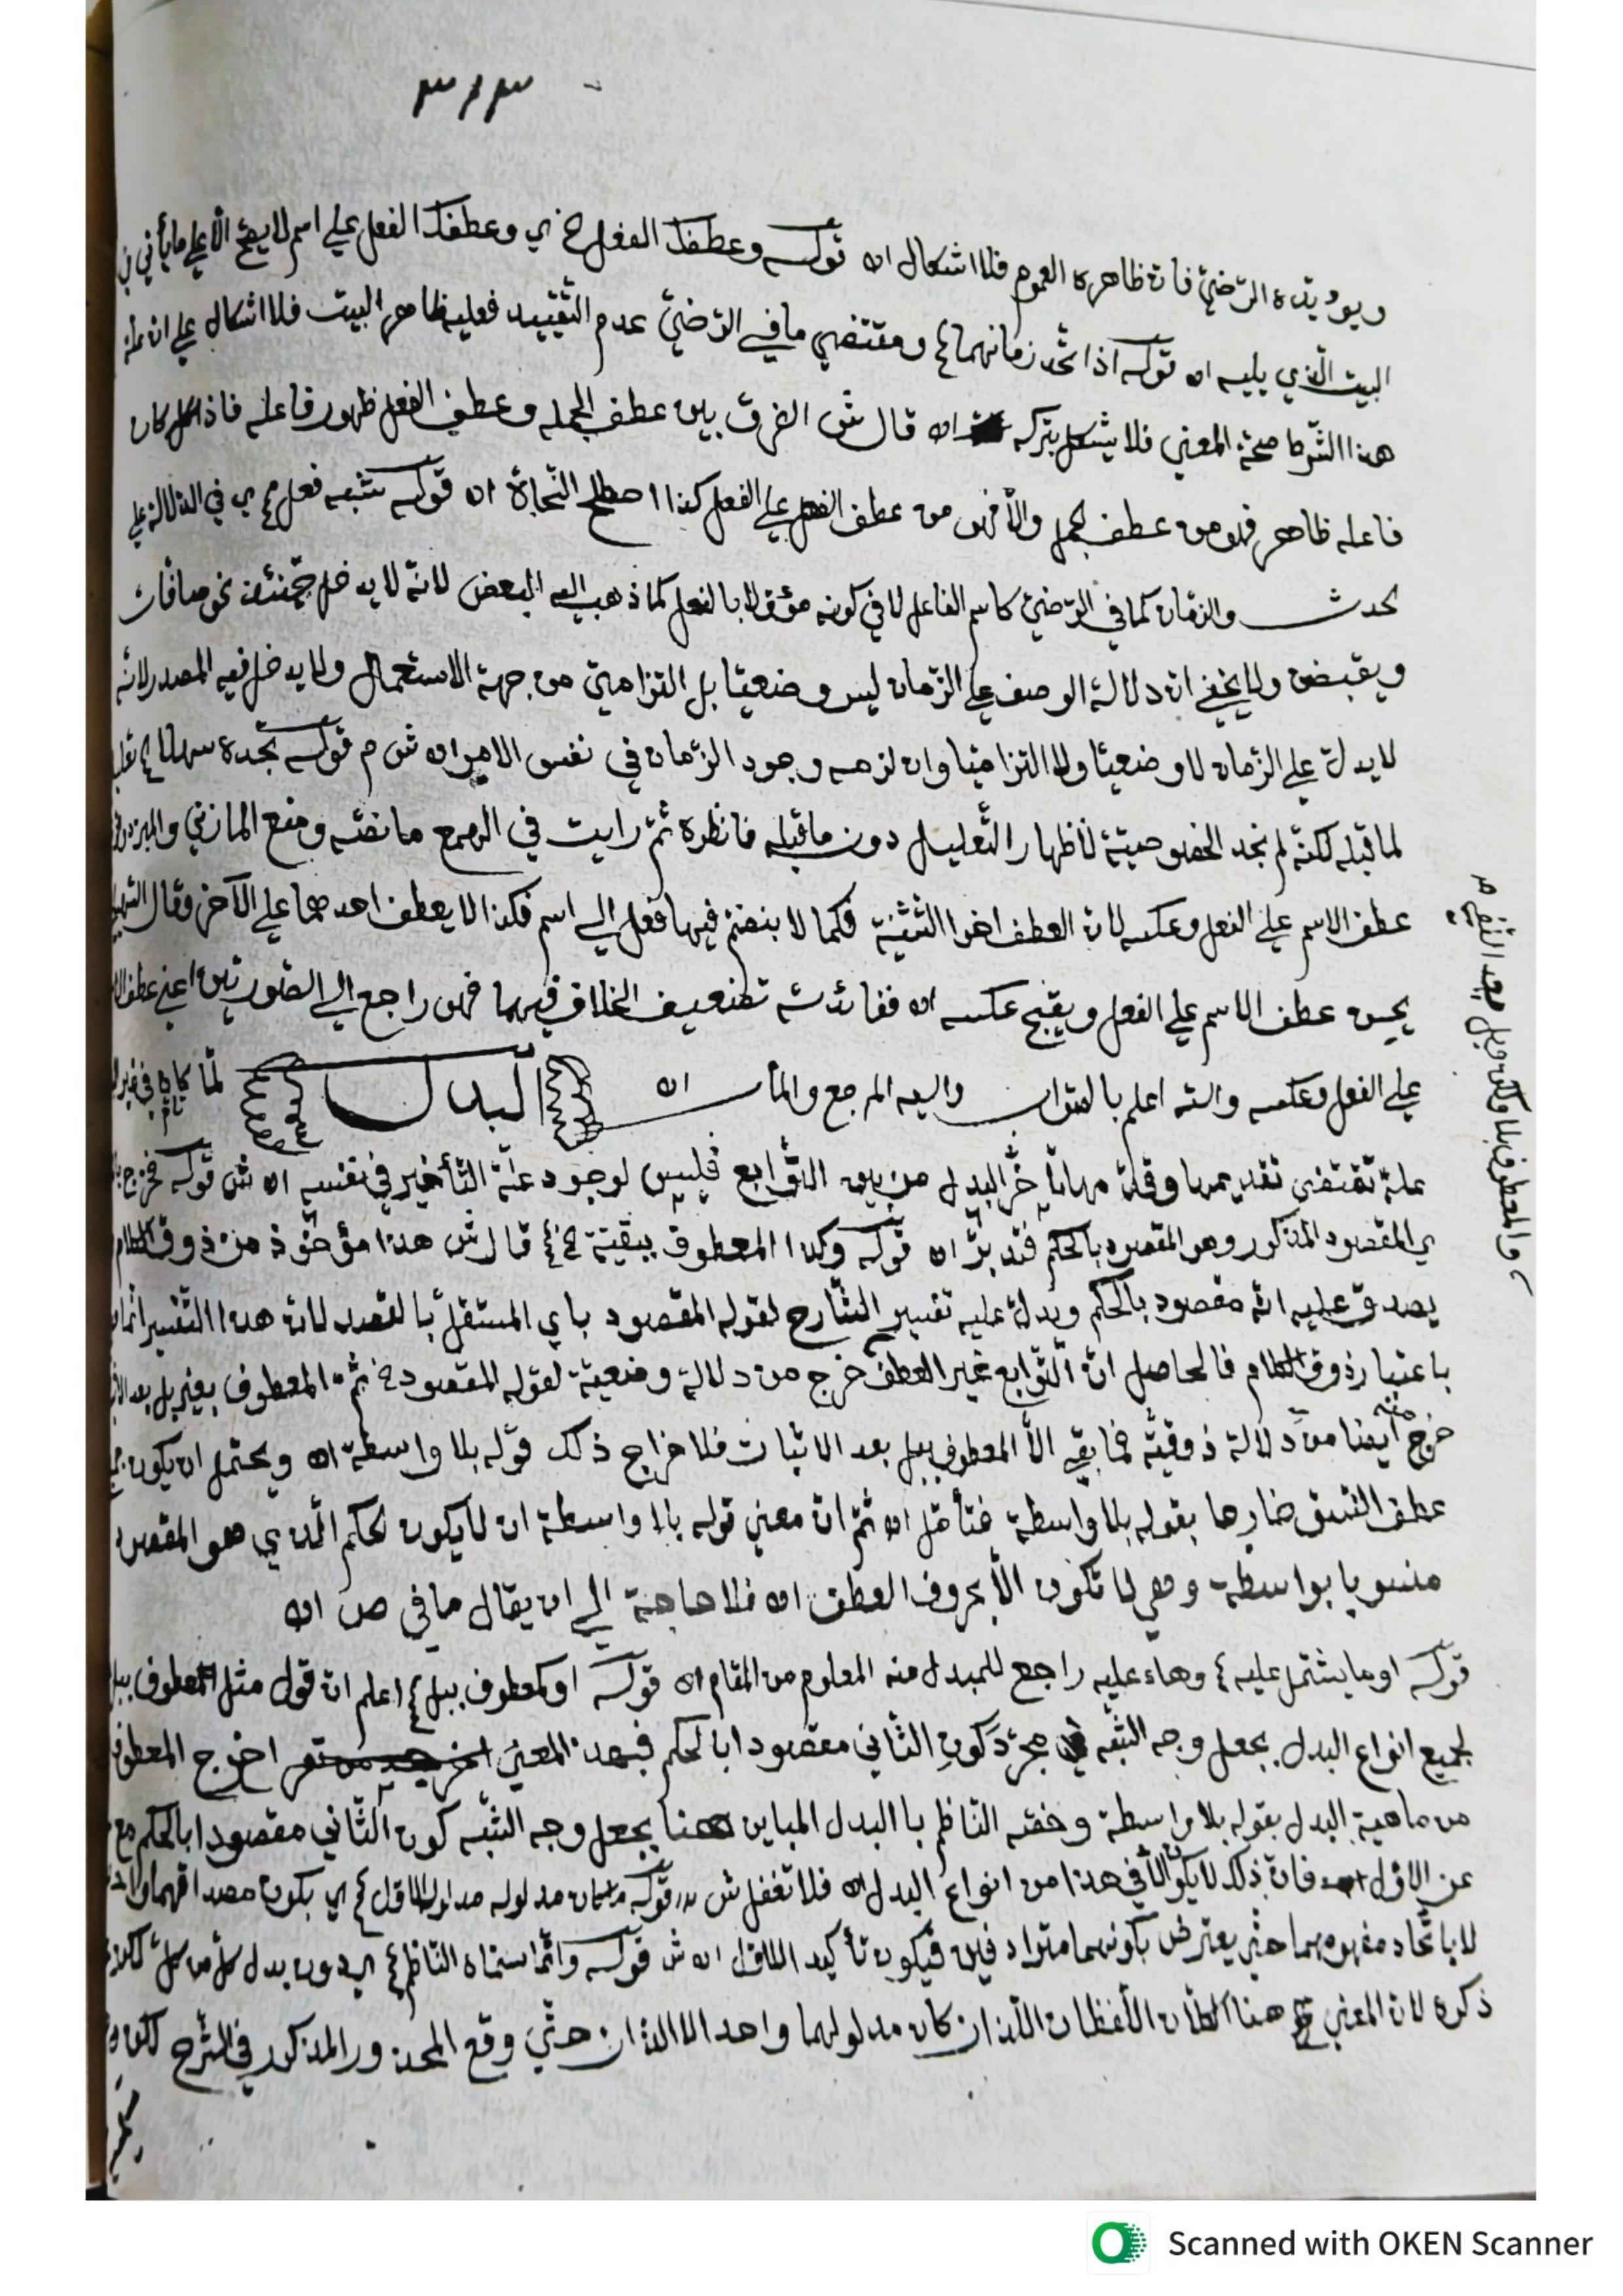 ٣١٣
ويؤيده الرّضيّ فانّ ظاهره العموم فلا اشكال اه قوله وعطفك الفعل اي وعطفك الفعل على اسم لا يصح الا على ما يأتي
البيت الّذي يليه اه قوله اذا اتّحد زمانهما ومقتضي ما في الرّضيّ عدم التّقييد فعليه ظاهر البيت فلا اشكال على ان
هذا الشّرط صحة المعني فلا يشكل بتركه اه قال ش الفرق بين عطف الجمله وعطف الفعل ظهور فاعله فاذا كان
فاعله ظاهر فهو من عطف الجمل والّا فهو من عطف الفعل على الفعل كذا اصطلح النّحاة اه قوله شبه فعل اي في الدّلالة على
الحدث والزمان كما في الرّضيّ كاسم الفاعل لا في كونه مؤوّلا بالفعل كما ذهب اليه البعض لانّه لا يدخل حينئذ نحو صافّات
ويقبضن ولا يخفي انّ دلالة الوصف على الزّمان ليس وضعيّا بل التزاميّ من جهة الاستعمال ولا يدخل فيه المصدر لانّه
لا يدلّ على الزّمان لا وضعيّا ولا التزاميّا وان لزمه وجود الزّمان في نفس الامر اه ش م قوله تجده سهلا
لما قبله لكنّه لم نجد الخصوصيّة لاظهار التّعليل دون ما قبله فانظره ثمّ رايت في الهمع ما نصّه ومنع المازنيّ والمبرد
عطف الاسم على الفعل وعكسه لانّ العطف اخو التّثنية فكما لا ينضمّ فيها فعل الى اسم فكذا لا يعطف احدهما على الآخر وقال السّهيلي
يحسن عطف الاسم على الفعل ويقبح عكسه اه ففائدته تضعيف الخلاف فيهما فهو راجع الى الصّورتين اعني عطف
على الفعل وعكسه واللّه اعلم بالصّواب واليه المرجع والمآب اه البدل لمّا كان في غير
علة تقتضي تقديمها وقلة مهانا خّر البدل من بين التّوابع فليس لوجود علّة التّأخير في نفسه اه ش قوله فخرج
اي المقصود المذكور وهو المقصود بالحكم فتدبّر اه قوله وكذا المعطوف ببقيّة قال ش هذا مؤخوذ من ذوق الكلام
يصدق عليه انّه مقصود بالحكم ويدلّ عليه تفسير الشّارح لقوله المقصود باي المستقلّ بالقصد لانّ هذا التّفسير انّما
باعتبار ذوق الكلام فالحاصل انّ التّوابع غير العطف خرج من دلالة وضعيّة لقوله المقصود ثمّ المعطوف بغير بل بعد
خرج ايضا من دلالة ذوقيّة فما بقي الّا المعطوف ببل بعد الاثبات فلاخراج ذلك قوله بلا واسطة اه ويحتمل ان يكون
عطف النّسق خارجا بقوله بلا واسطة فتأمّل اه ثمّ انّ معني قوله بلا واسطة ان لا يكون الحكم الّذي هو المقصود
منسوبا بواسطة وهي لا تكون الّا بحروف العطف اه فلا حاجة الى ان يقال ما في ص اه
قوله او ما يشتمل عليه وهاء عليه راجع للمبدل منه المعلوم من المقام اه قوله او كمعطوف ببل اعلم انّ قول مثل المعطوف ببل
لجميع انواع البدل بجعل وجه الشّبه مجرّد كون الثّاني مقصودا بالحكم فبهذا المعني اخرج المعطوف
من ماهية البدل بقوله بلا واسطة وخصّه النّاظم بالبدل المباين هنا بجعل وجه الشّبه كون الثّاني مقصودا بالحكم مع
عن الاوّل فانّ ذلك لا يكون الّا في هذا من انواع البدل اه فلا تغفل ش قوله مدلوله مدلول الاوّل اي يكون مصداقهما
لا باتّحاد مفهومهما حتّي يعترض بكونهما مترادفين فيكون تأكيد اللاوّل اه ش قوله وانّما سمّاه النّاظم اي دون بدل كلّ من كلّ
ذكره لان المعني هنا الّلفظان اللّذان كان مدلولهما واحد الا اللذان حتّي وقع المحذور المذكور في الشّرح لكن
والمعطوف بلا ولكن وبل بعد النّفي